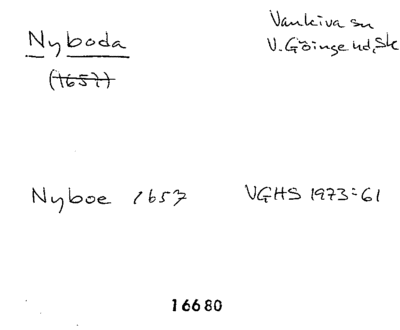 Nyboda
(1657)
Vankiva sn
V. Göinge hd, Sk
Nyboe 1657 VGHS 1973:61
16680